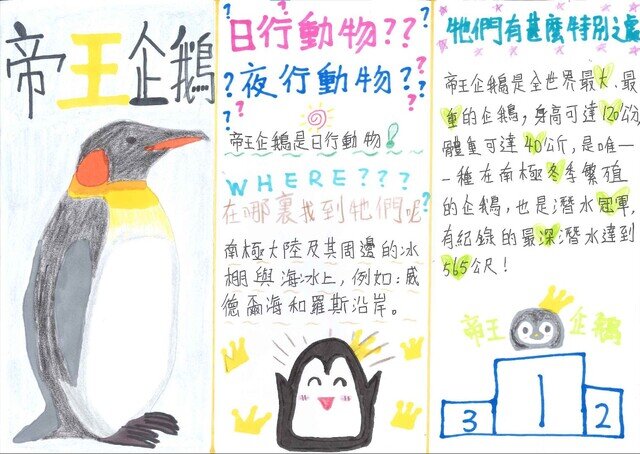 帝王企鵝
日行動物??
夜行動物?
帝王企鵝是日行動物!
WHERE???
在哪裏找到牠們呢?
南極大陸及其周邊的冰
棚與海冰上，例如:威
德爾海和羅斯沿岸。
牠們有甚麼特別之處
帝王企鵝是全世界最大、最
重的企鵝，身高可達120公分,
體重可達40公斤，是唯一
一種在南極冬季繁殖
的企鵝，也是潛水冠軍,
有紀錄的最深潛水達到
565公尺!
帝王 企鵝
3 1 2